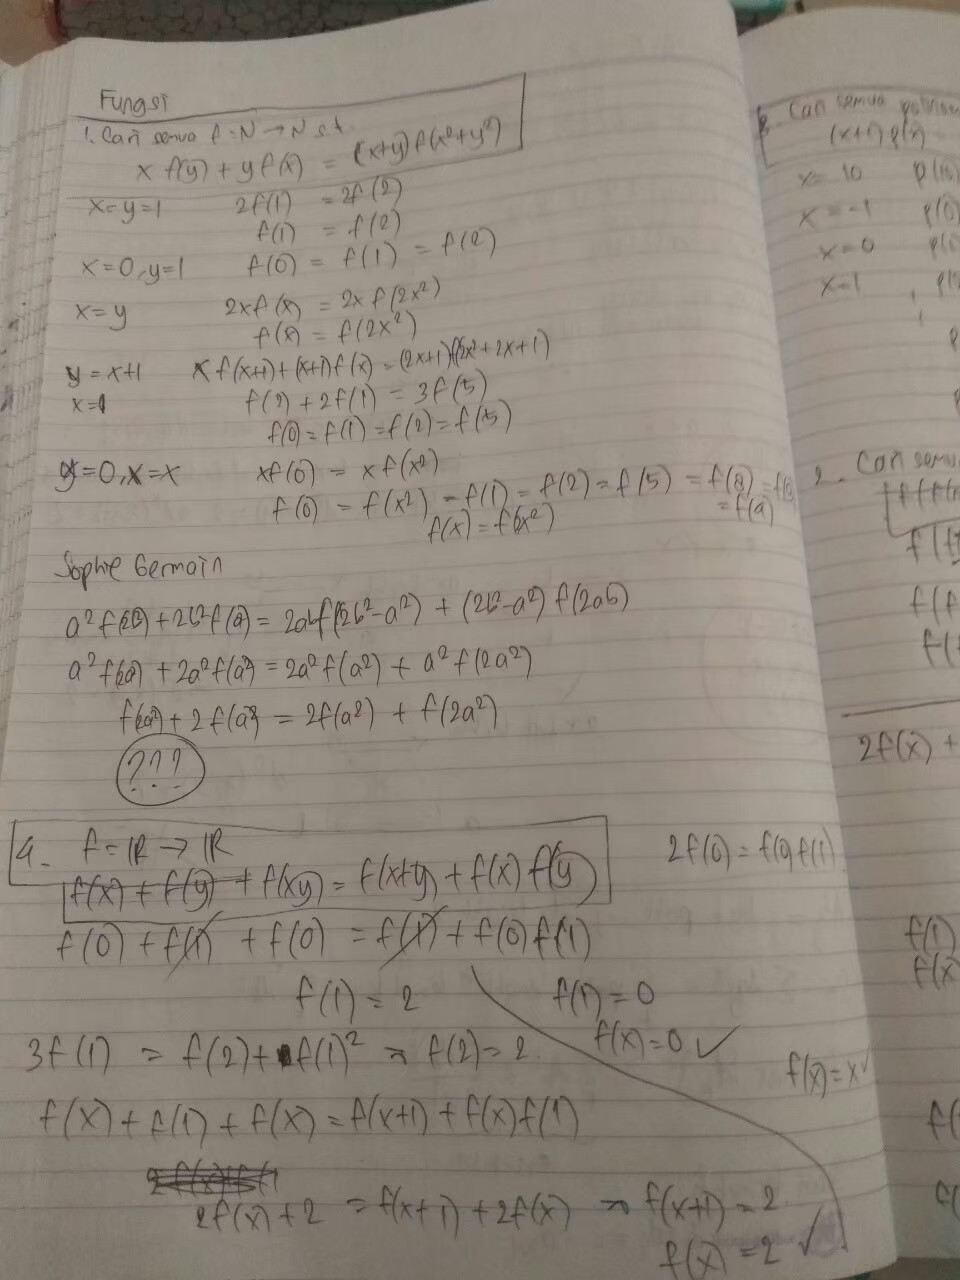 Fungsi
1. Cari semua f = N → N s.t.
x f(y) + y f(x) = (x+y) f(x²+y²)
x=y=1 2f(1) = 2f(2)
f(1) = f(2)
x=0, y=1 f(0) = f(1) = f(2)
x=y 2xf(x) = 2x f(2x²)
f(x) = f(2x²)
y = x+1 x f(x+1) + (x+1) f(x) = (2x+1) f(2x²+2x+1)
x=1 f(2) + 2f(1) = 3f(5)
f(0) = f(1) = f(2) = f(5)
y=0, x=x xf(0) = xf(x²)
f(0) = f(x²) = f(1) = f(2) = f(5) = f(8)
= f(a)
f(x) = f(x²)
Sophie Germain
a² f(2b²) + 2b² f(a²) = 2ab f(2b²-a²) + (2b²-a²) f(2ab)
a² f(2a²) + 2a² f(a²) = 2a² f(a²) + a² f(2a²)
f(2a²) + 2f(a²) = 2f(a²) + f(2a²)
???
4. f = ℝ → ℝ
f(x) + f(y) + f(xy) = f(x+y) + f(x) f(y)
f(0) + f(1) + f(0) = f(1) + f(0) f(1)
2f(0) = f(0) f(1)
f(1) = 2 f(1) = 0
f(x) = 0 ✓
3f(1) = f(2) + f(1)² → f(2) = 2
f(x) = x ✓
f(x) + f(1) + f(x) = f(x+1) + f(x) f(1)
2f(x) + 2 = f(x+1) + 2f(x) → f(x+1) = 2
f(x) = 2 ✓
Cari semua
(x+1) p(x)
x = 10
x = -1
x = 0
x = 1
2. Cari semua
2f(x) +
f(1)